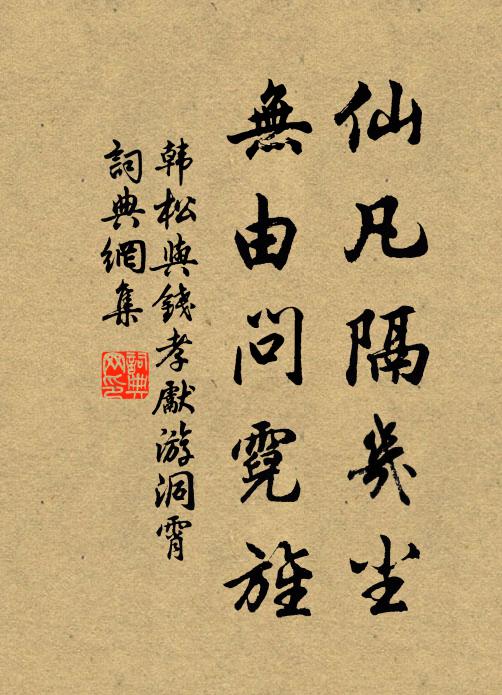 仙凡隔幾尘
無由問霓旌
韩松與錢孝獻游洞霄
詞典網集
詞典网印